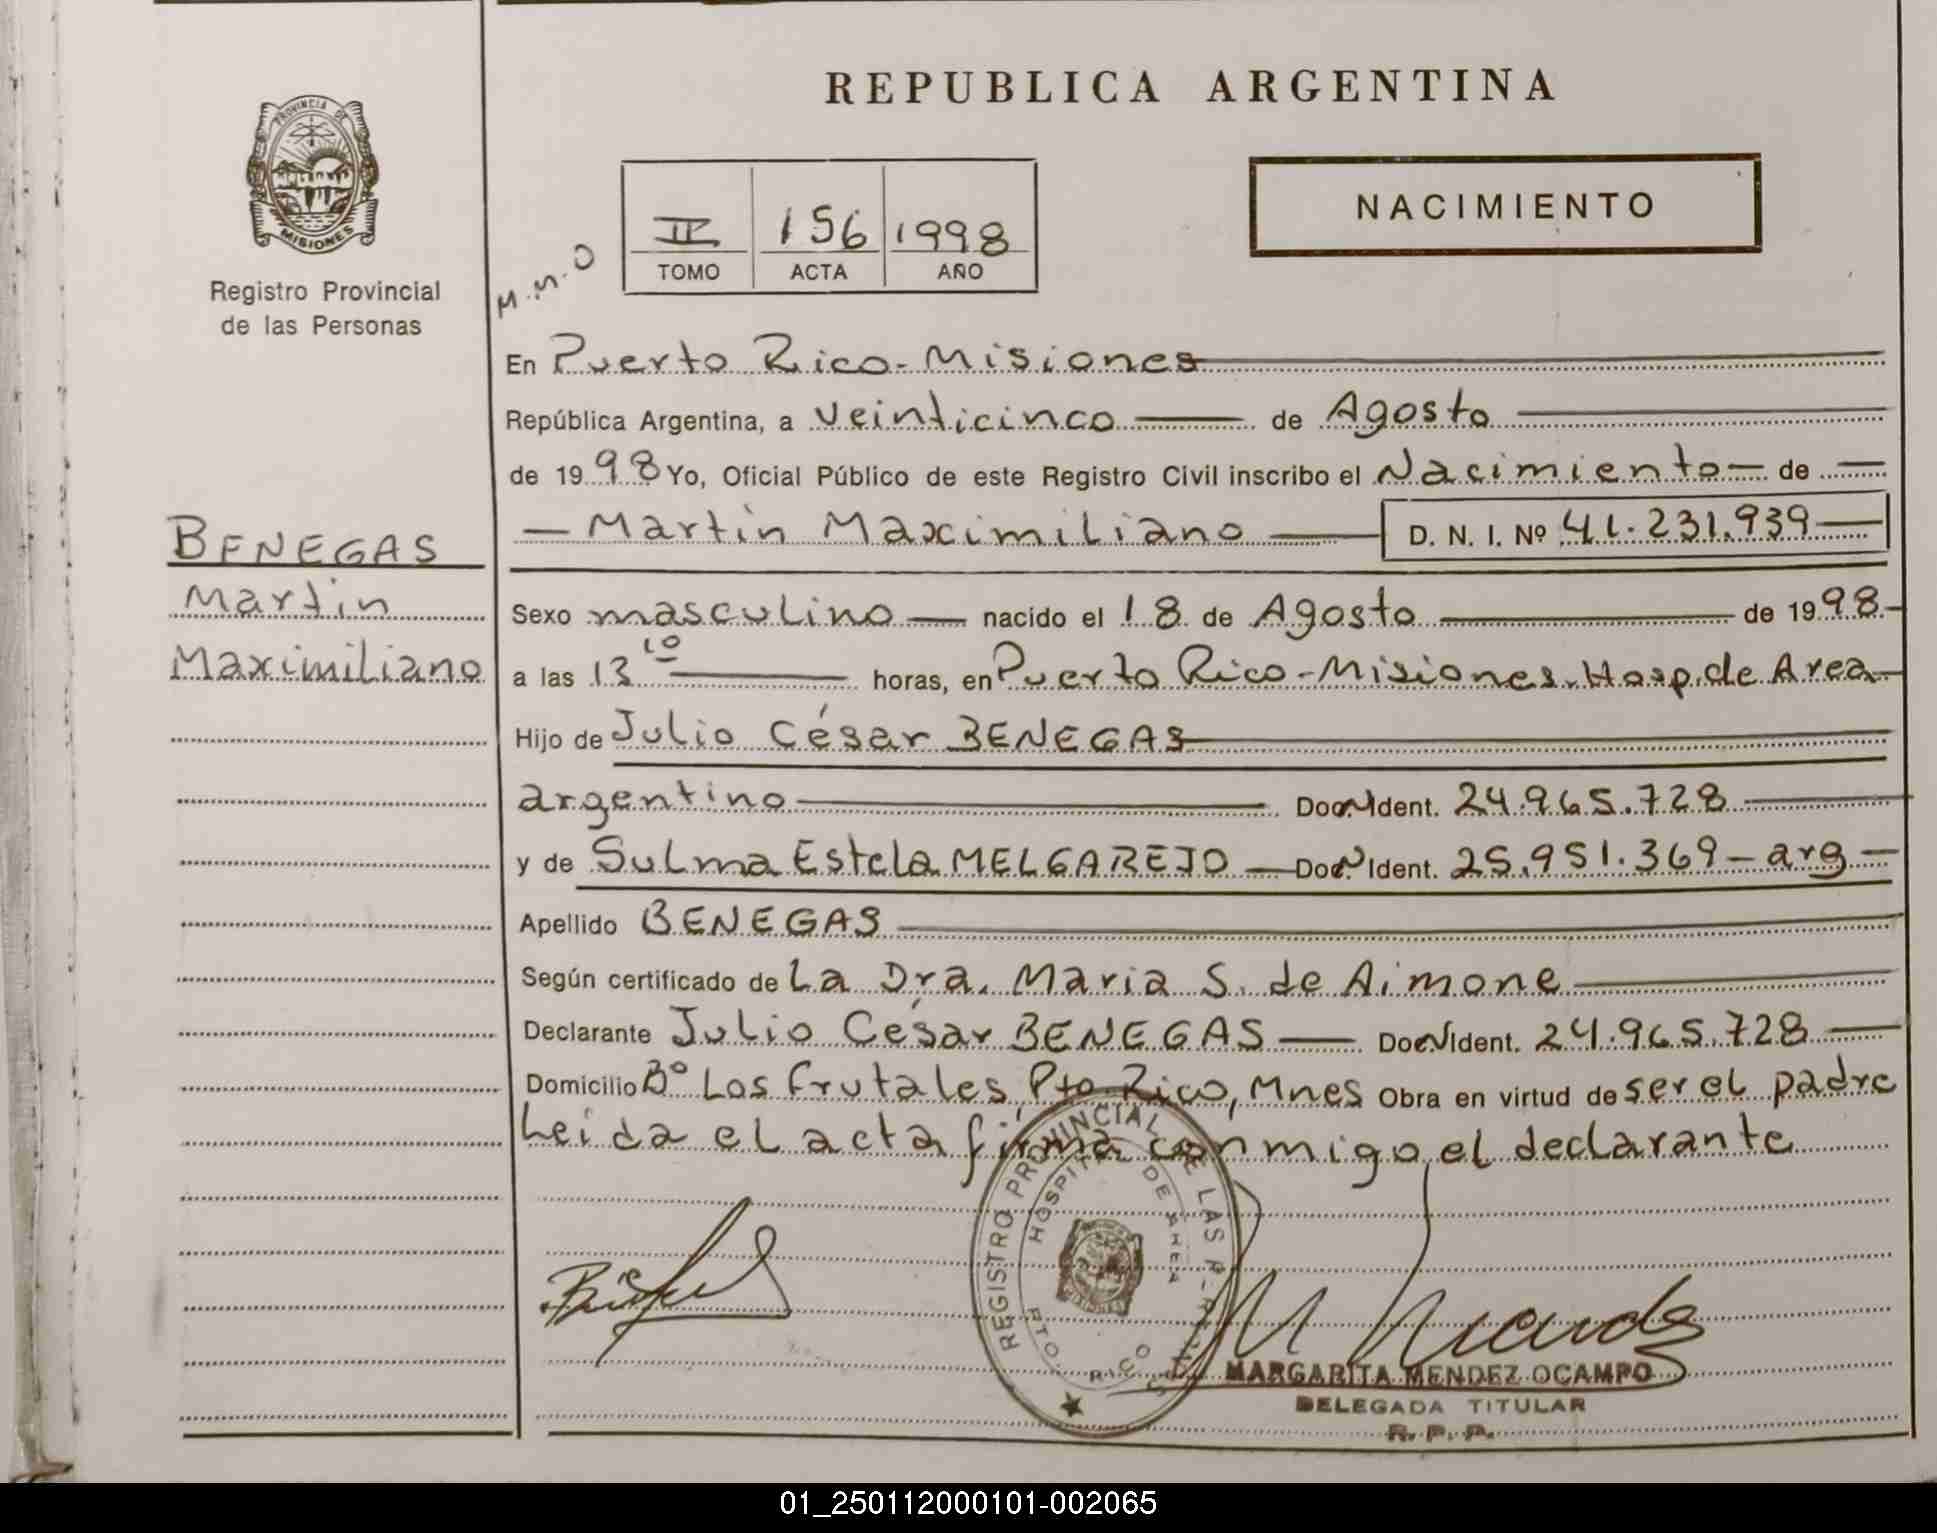 REPUBLICA ARGENTINA
PROVINCIA DE
MISIONES
Registro Provincial
de las Personas
M.M.O
II 156 1998
TOMO ACTA AÑO
NACIMIENTO
BENEGAS
Martin
Maximiliano
En Puerto Rico - Misiones
República Argentina, a veinticinco de Agosto
de 1998 Yo, Oficial Público de este Registro Civil inscribo el Nacimiento de
Martin Maximiliano D. N. I. Nº 41.231.939
Sexo masculino nacido el 18 de Agosto de 1998
a las 13 10 horas, en Puerto Rico - Misiones. Hosp. de Area
Hijo de Julio César BENEGAS
argentino Doc. N Ident. 24.965.728
y de Sulma Estela MELGAREJO Doc. N Ident. 25.951.369 - arg
Apellido BENEGAS
Según certificado de La Dra. Maria S. de Aimone
Declarante Julio César BENEGAS Doc N Ident. 24.965.728
Domicilio Bº Los Frutales, Pto Rico, Mnes Obra en virtud de ser el padre
Leida el acta firma conmigo, el declarante
REGISTRO PROVINCIAL DE LAS
HOSPITAL DE AREA
PTO. RICO
MARGARITA MENDEZ OCAMPO
DELEGADA TITULAR
R. P. P.
01_250112000101-002065